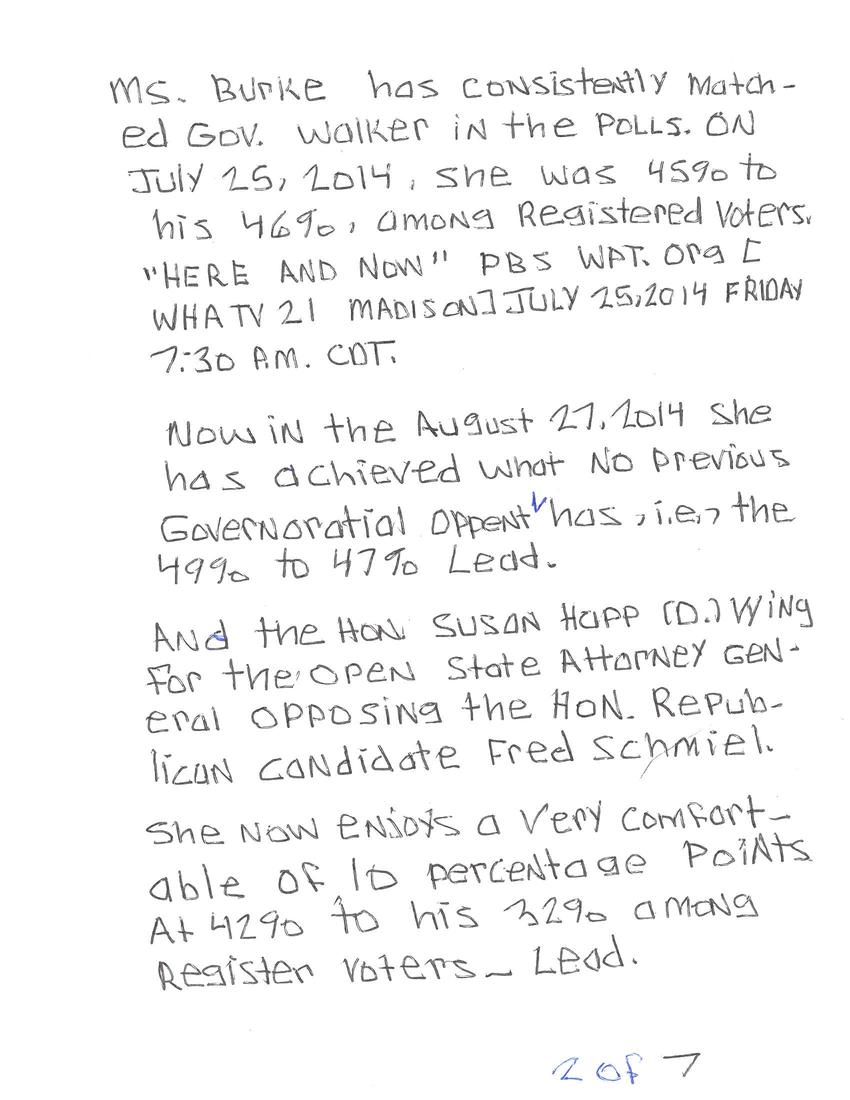 Ms. Burke has consistently match-
ed Gov. Walker in the Polls. On
July 25, 2014, she was 45% to
his 46%, among Registered Voters.
"HERE AND NOW" PBS WPT. Org [
WHA TV 21 MADISON] JULY 25, 2014 FRIDAY
7:30 P.M. CDT.
Now in the August 27, 2014 she
has achieved what no previous
Governoratial Oppent has, i.e., the
49% to 47% Lead.
And the Hon. Susan Happ (D.) Wing
for the open State Attorney Gen-
eral opposing the Hon. Repub-
lican candidate Fred Schmiel.
She now enjoys a very comfort-
able of 10 percentage Points
At 42% to his 32% among
Register voters - Lead.
2 of 7